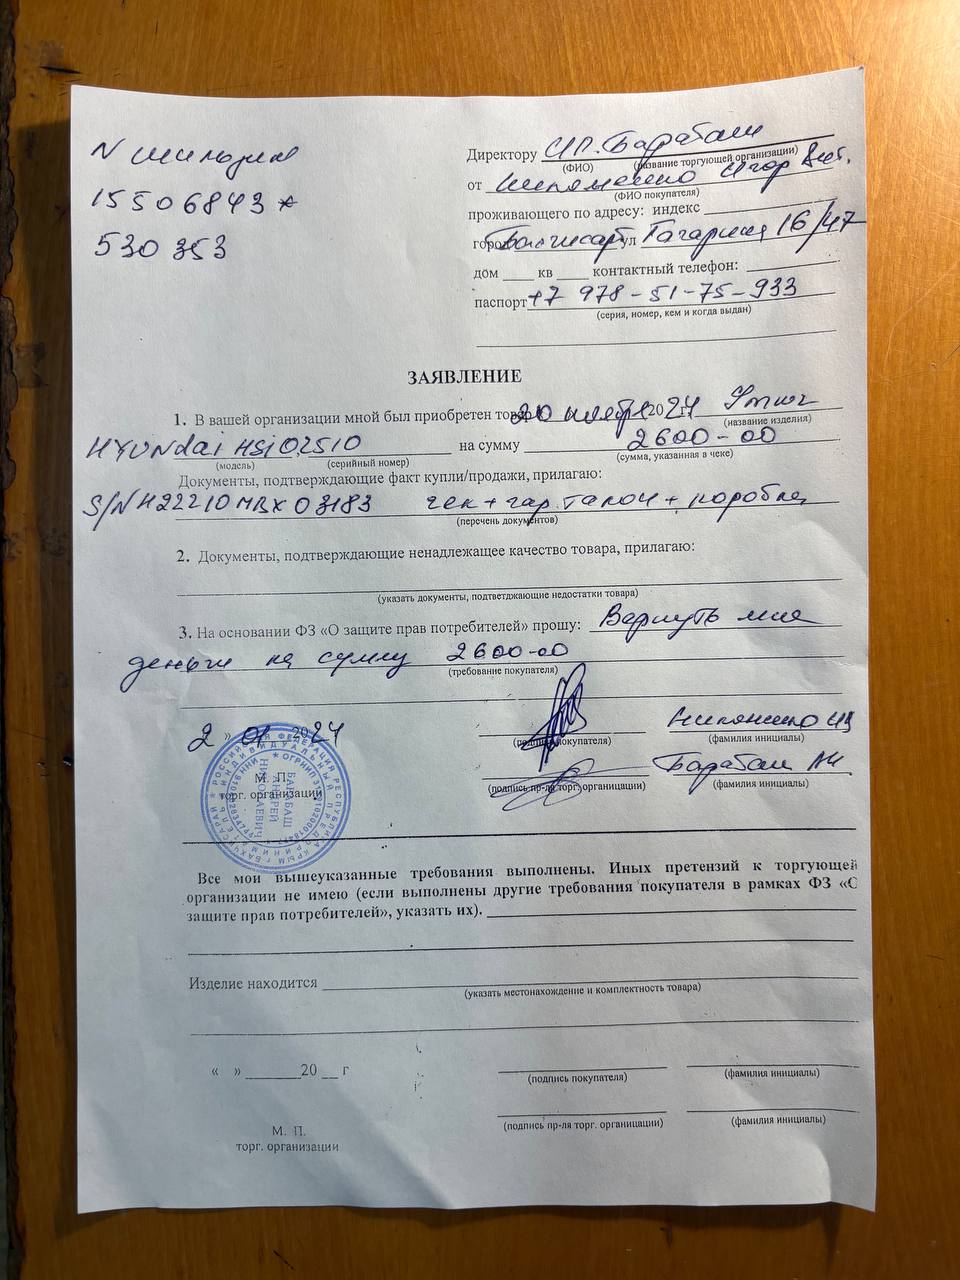 N
15506843 *
530 353
Директору ИП. Барабаш
(ФИО) (название торгующей организации)
от Игор
(ФИО покупателя)
проживающего по адресу: индекс
город ул Гагарина 16/47
дом ____ кв ____ контактный телефон:
паспорт +7 978-51-75-933
(серия, номер, кем и когда выдан)
ЗАЯВЛЕНИЕ
1. В вашей организации мной был приобретен 20 2024 Утюг
(название изделия)
HYUNdai HSi02510 на сумму 2600-00
(модель) (серийный номер) (сумма, указанная в чеке)
Документы, подтверждающие факт купли/продажи, прилагаю:
чек + гар. талон + коробка
(перечень документов)
2. Документы, подтверждающие ненадлежащее качество товара, прилагаю:
(указать документы, подтветджающие недостатки товара)
3. На основании ФЗ «О защите прав потребителей» прошу: Вернуть мне
деньги на сумму 2600-00
(требование покупателя)
2 » 01 2024
(подпись покупателя) (фамилия инициалы)
Барабаш АН
М. П. (подпись пр-ля торг. органицации) (фамилия инициалы)
торг. организации
БАРАБАШ
АНДРЕЙ
НИКОЛАЕВИЧ
Все мои вышеуказанные требования выполнены. Иных претензий к торгующей
организации не имею (если выполнены другие требования покупателя в рамках ФЗ «О
защите прав потребителей», указать их).
Изделие находится
(указать местонахождение и комплектность товара)
« » ______20 __ г
(подпись покупателя) (фамилия инициалы)
(подпись пр-ля торг. органицации) (фамилия инициалы)
М. П.
торг. организации